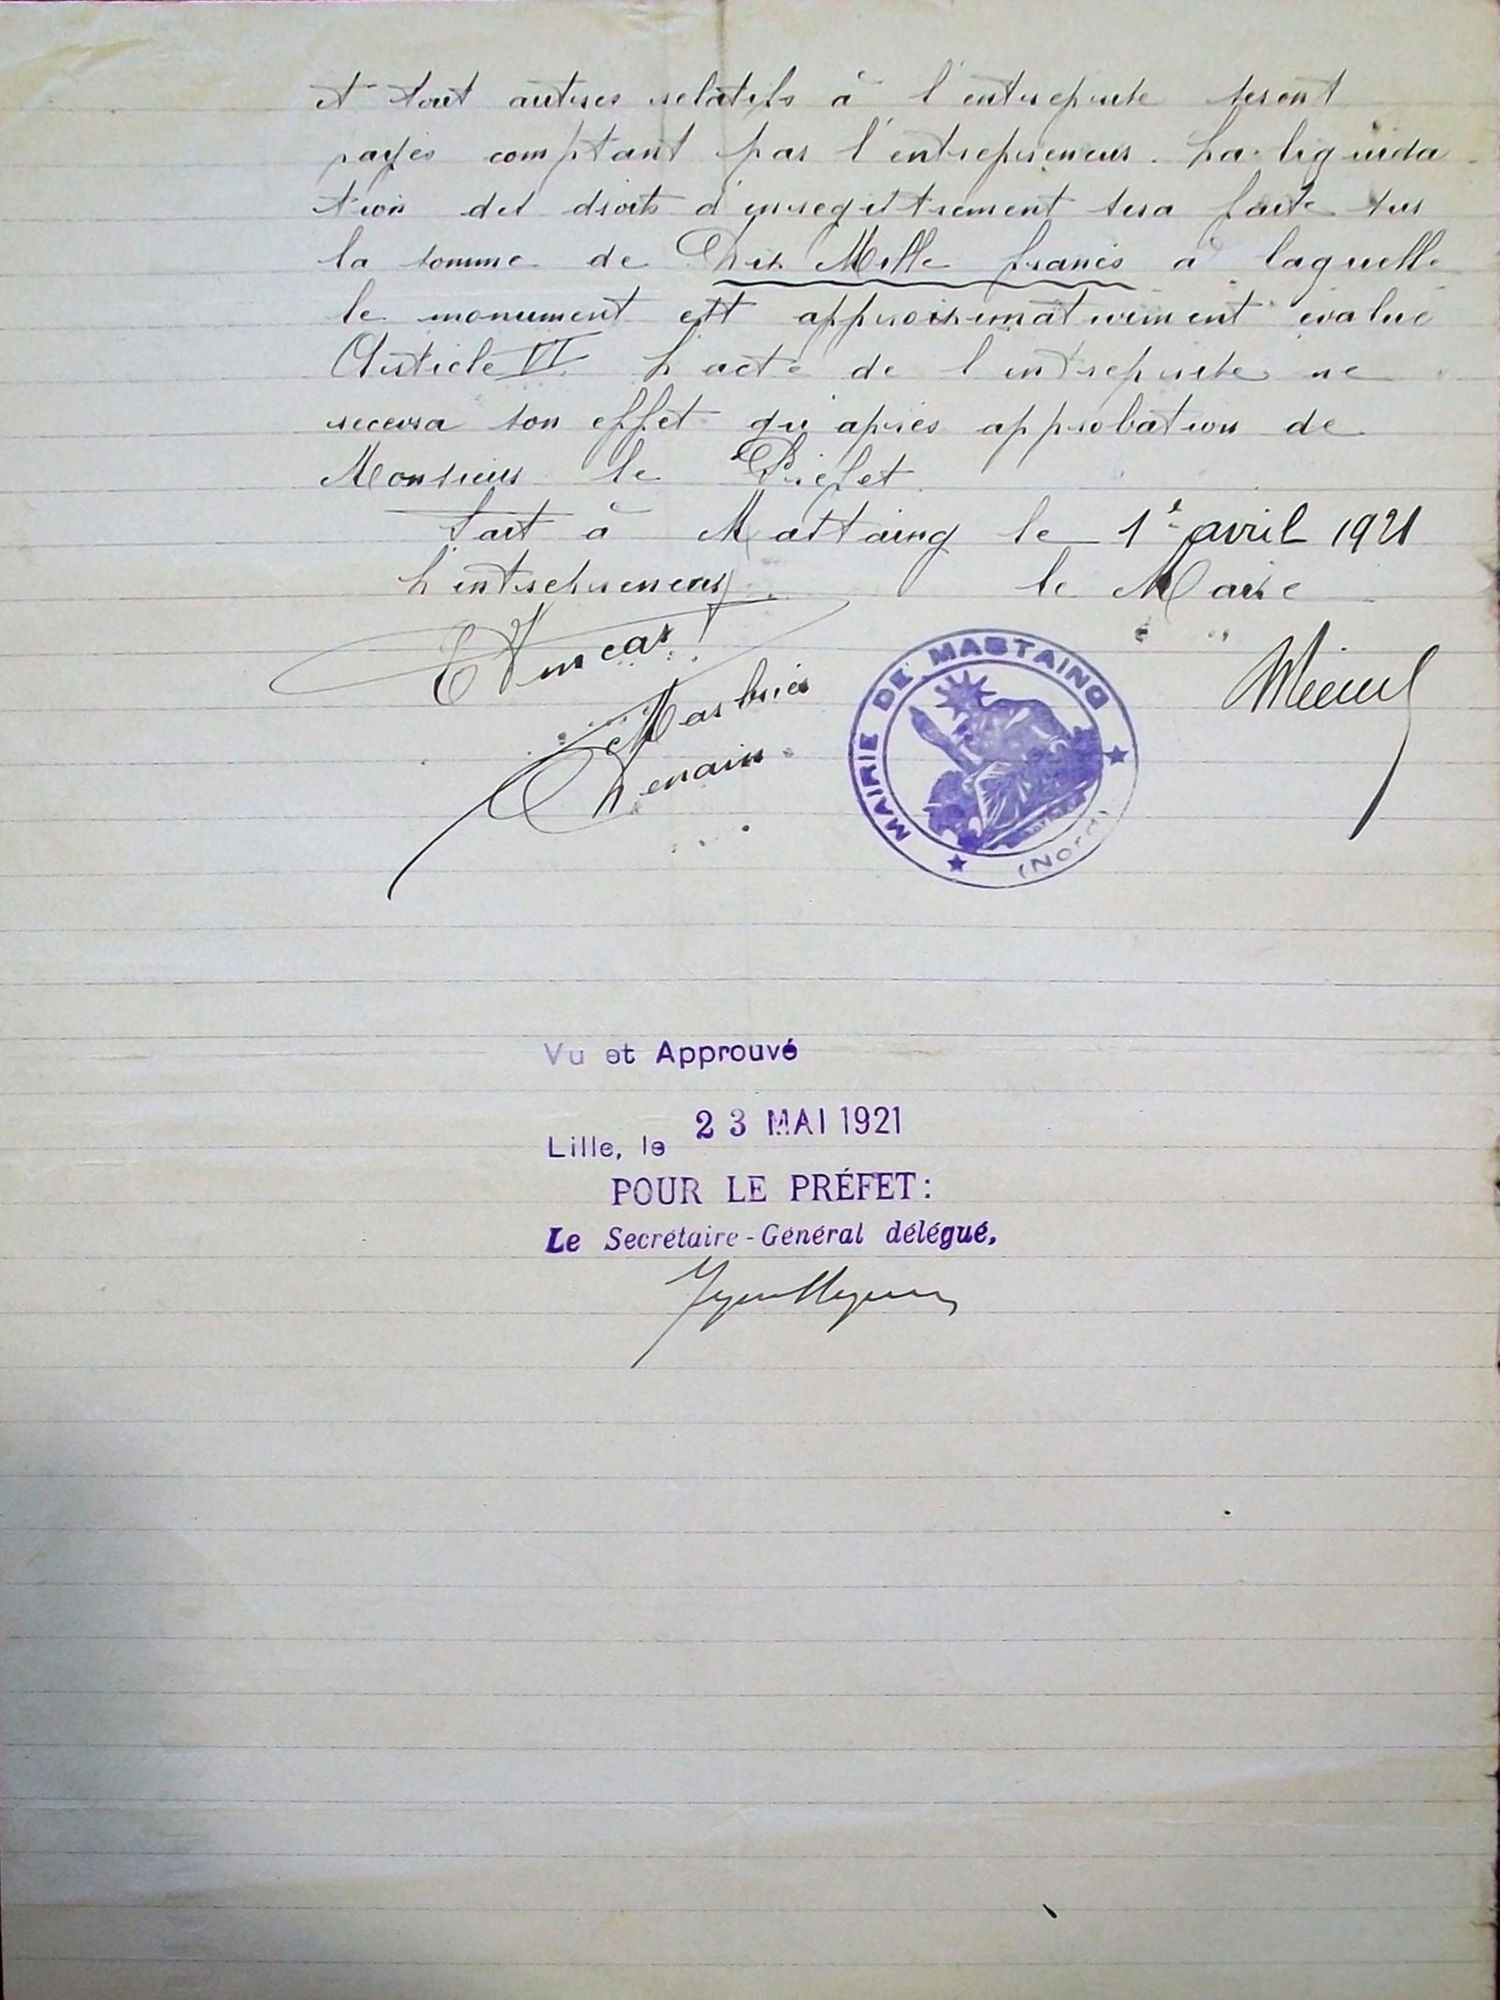 et tout autres relatifs à l'entreprise seront
payés comptant par l'entrepreneur. La liquida
tion des droits d'enregistrement sera faite sur
la somme de Dix Mille francs à laquelle
le monument est approximativement évalué
Article VI. L'acte de l'entreprise ne
recevra son effet qu'après approbation de
Monsieur le Préfet.
Fait à Mastaing le 1e avril 1921
L'entrepreneur le Maire
Marbrier
Denain
MAIRIE DE MASTAING
(Nord)
Vu et Approuvé
23 MAI 1921
Lille, le
POUR LE PRÉFET:
Le Secrétaire-Général délégué,